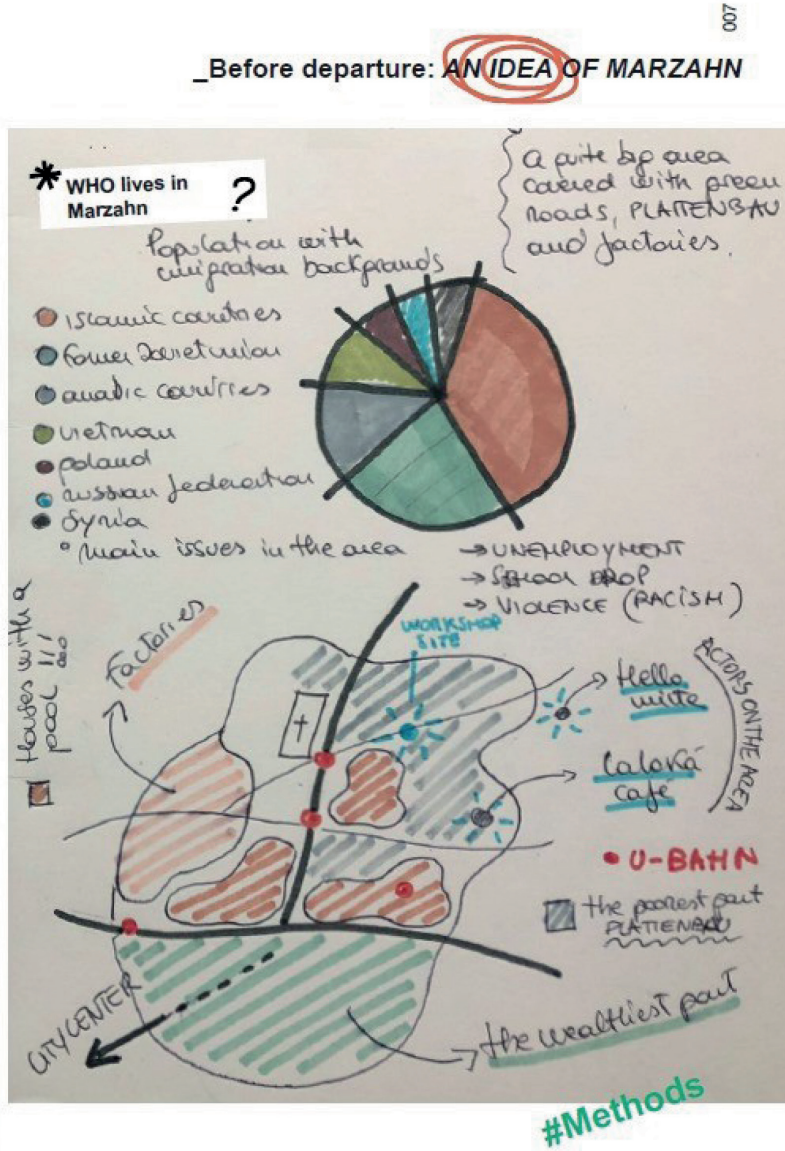 007
_Before departure: AN IDEA OF MARZAHN
* WHO lives in
Marzahn ?
A quite big area
covered with green
roads, PLATTENBAU
and factories.
Population with
emigration backgrounds
islamic countries
former Sovietunion
arabic countries
vietnam
poland
russian federation
Syria
° main issues in the area → UNEMPLOYMENT
→ SCHOOL DROP
→ VIOLENCE (RACISM)
Houses with a
pool !!!
Factories
WORKSHOP
SITE
Hello
mitte
LaLoKa
café
ACTORS ON THE AREA
U-BAHN
the poorest part
PLATTENBAU
CITY CENTER
the wealthiest part
#Methods